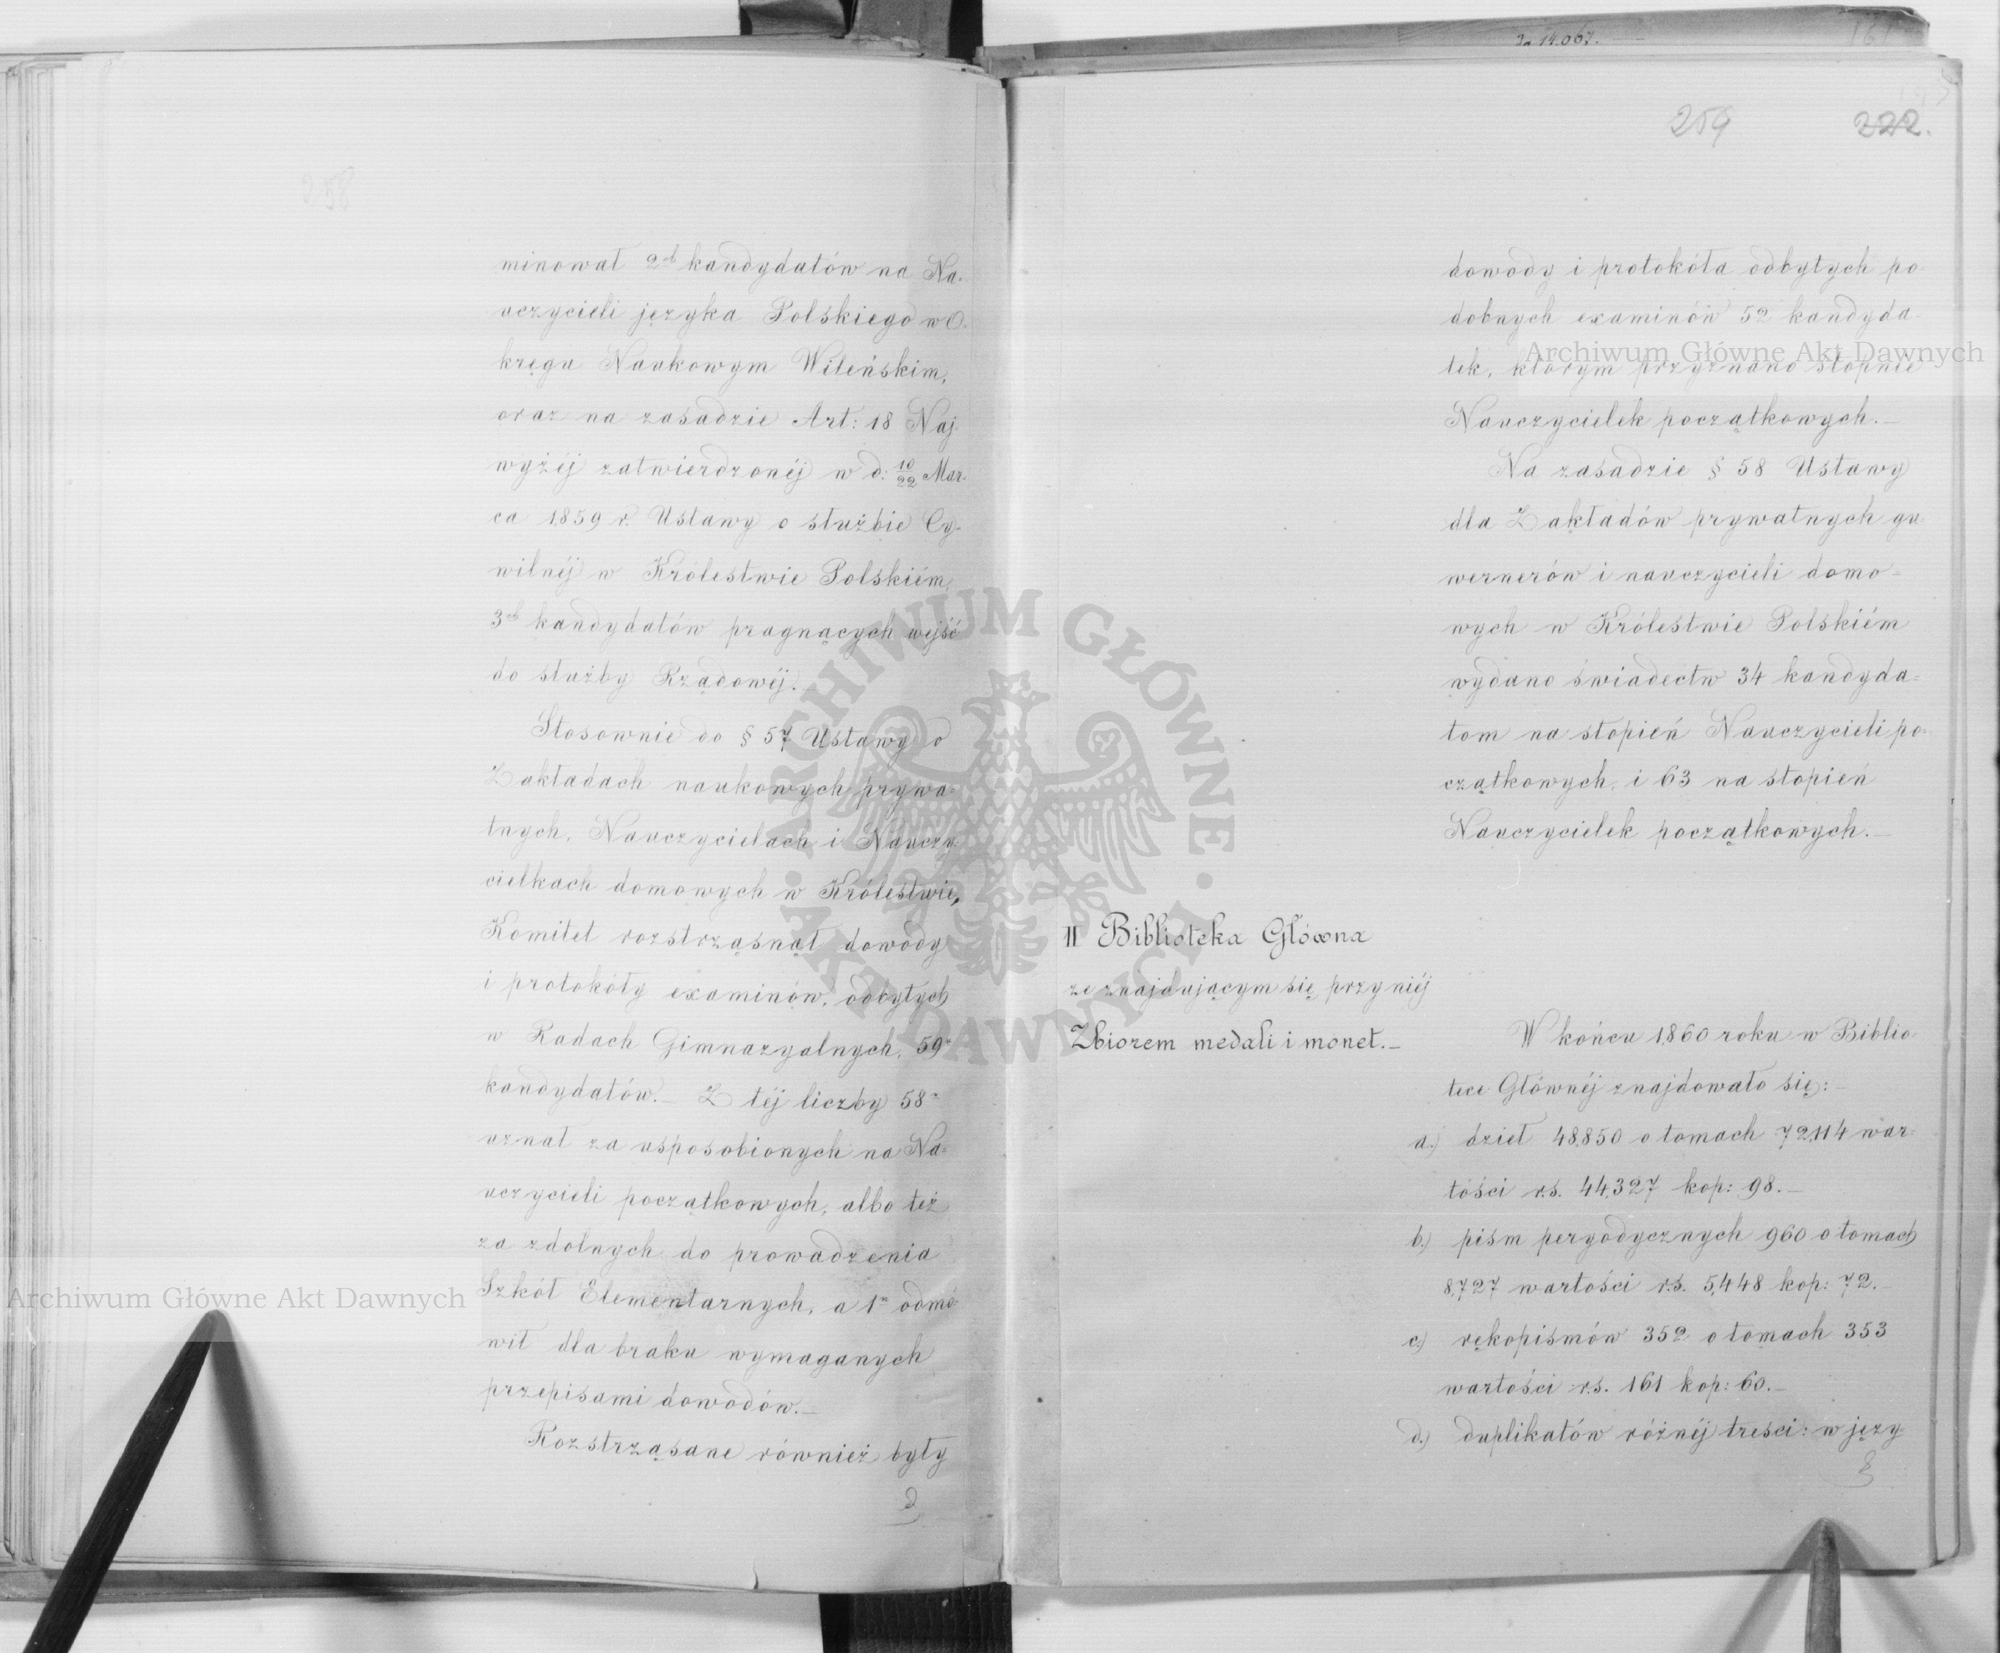 258
minował 2ch kandydatów na Na-
uczycieli języka Polskiego w O-
kręgu Naukowym Wileńskim,
oraz na zasadzie Art: 18 Naj
wyżéj zatwierdzonéj w d: 10/22 Mar-
ca 1859 r. Ustawy o służbie Cy-
wilnéj w Królestwie Polskiém,
3ch kandydatów pragnących wejść
do służby Rządowéj.
Stosownie do § 57 Ustawy o
Zakładach naukowych prywa-
tnych, Nauczycielach i Nauczy-
cielkach domowych w Królestwie,
Komitet rozstrząsnął dowody
i protokóły examinów, odbytych
w Radach Gimnazyalnych, 59
kandydatów.— Z téj liczby 58
uznał za usposobionych na Na-
uczycieli początkowych, albo też
za zdolnych do prowadzenia
Szkół Elementarnych, a 1 odmó-
wił dla braku wymaganych
przepisami dowodów.—
Rozstrząsane również były
14.067.
259 222.
dowody i protokóła odbytych po-
dobnych examinów 52 kandyda-
tek, którym przyznano stopnie
Nauczycielek początkowych.—
Na zasadzie § 58 Ustawy
dla Zakładów prywatnych gu-
wernerów i nauczycieli domo-
wych w Królestwie Polskiém
wydano świadectw 34 kandyda-
tom na stopień Nauczycieli po-
czątkowych, i 63 na stopień
Nauczycielek początkowych.—
II Biblioteka Główna
ze znajdującym się przy niéj
Zbiorem medali i monet.—
W końcu 1860 roku w Biblio-
tece Głównéj znajdowało się:—
a.) dzieł 48,850 o tomach 72,114 war-
tości r.s. 44,327 kop: 98.—
b.) pism peryodycznych 960 o tomach
8,727 wartości r.s. 5,448 kop: 72.—
c.) rękopismów 352 o tomach 353
wartości r.s. 161 kop: 60.—
d.) duplikatów różnéj treści: w języ-
Archiwum Główne Akt Dawnych
Archiwum Główne Akt Dawnych
ARCHIWUM GŁÓWNE AKT DAWNYCH